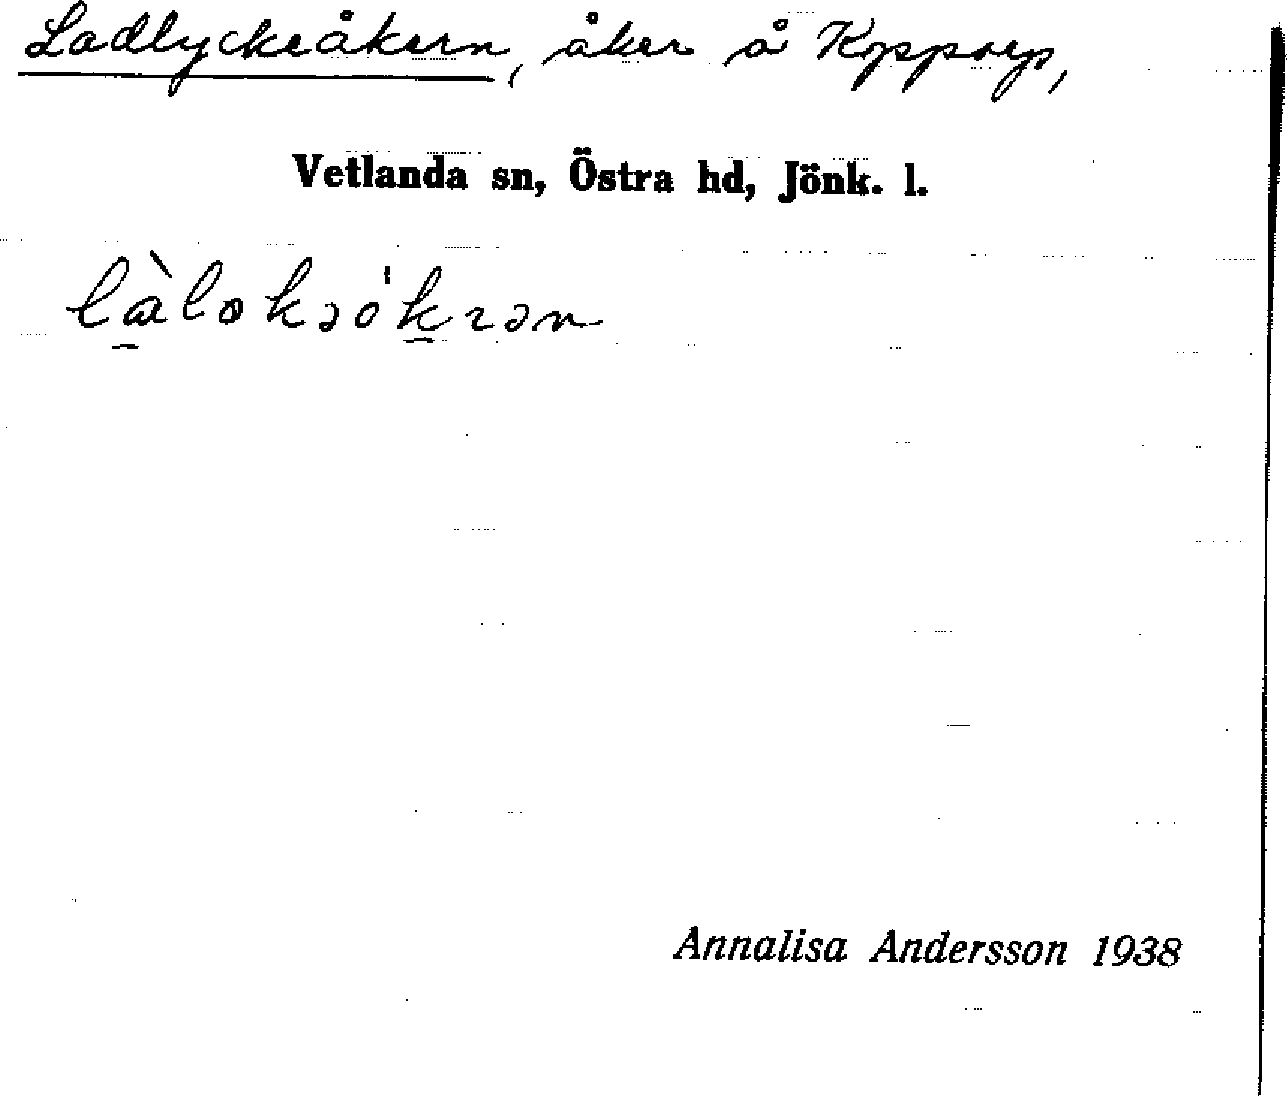 Ladlyckeåkern, åker å Kopparp,
Vetlanda sn, Östra hd, Jönk. l.
làloksókrən
Annalisa Andersson 1938